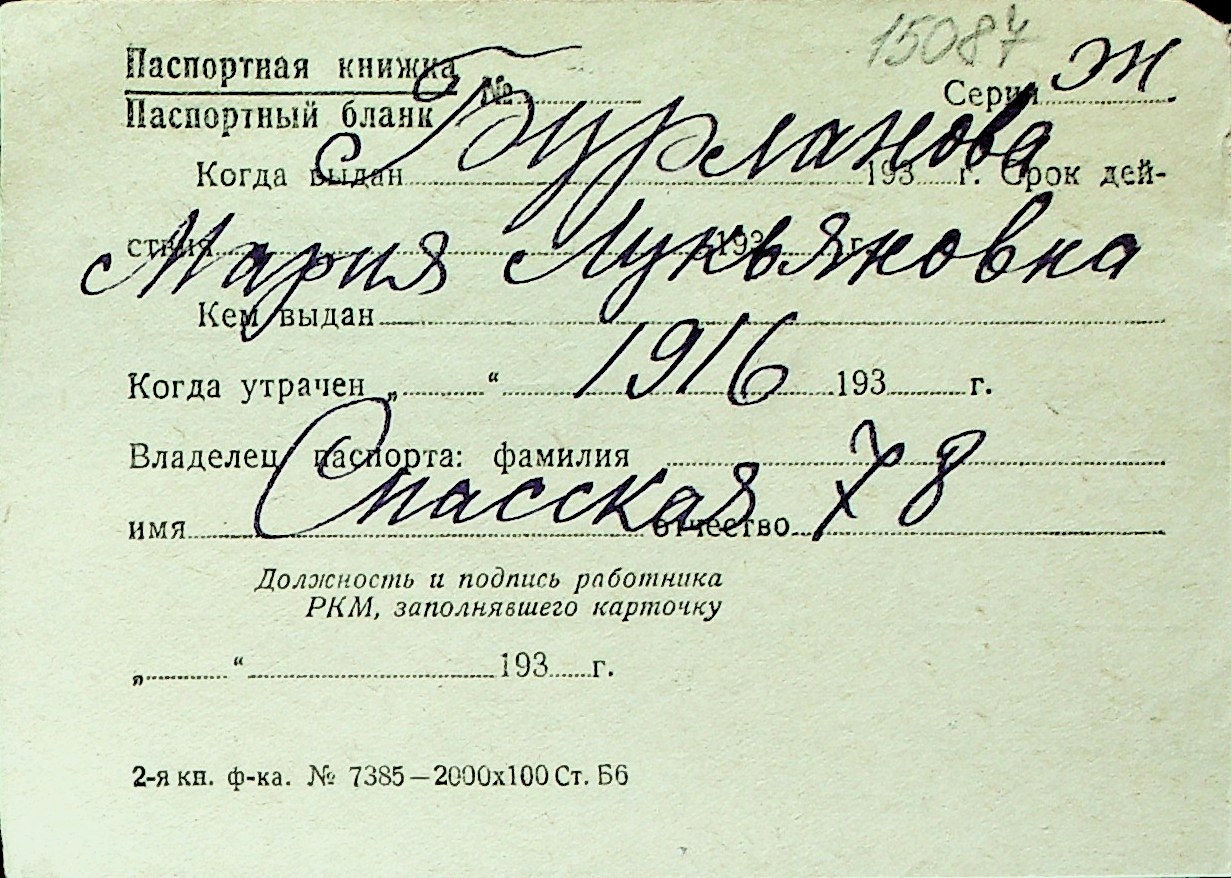 15087
Паспортная книжка
Паспортный бланк № Серия Ж
Бурланова
Когда выдан 193 г. Срок дей-
ствия 193 г.
Мария Лукьяновна
Кем выдан
1916
Когда утрачен „ “ 193 г.
Владелец паспорта: фамилия
Спасская 78
имя отчество
Должность и подпись работника
РКМ, заполнявшего карточку
„ “ 193 г.
2-я кн. ф-ка. № 7385—2000х100 Ст. Б6